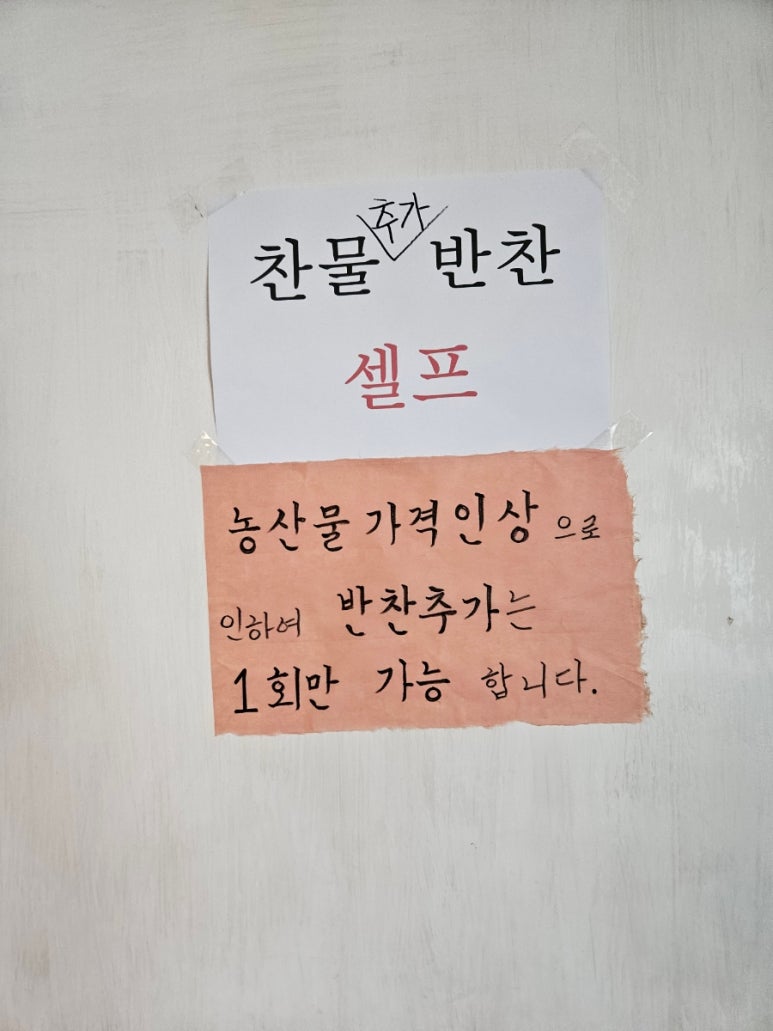 찬물 추가 반찬
셀프
농산물 가격인상으로
인하여 반찬추가는
1회만 가능합니다.